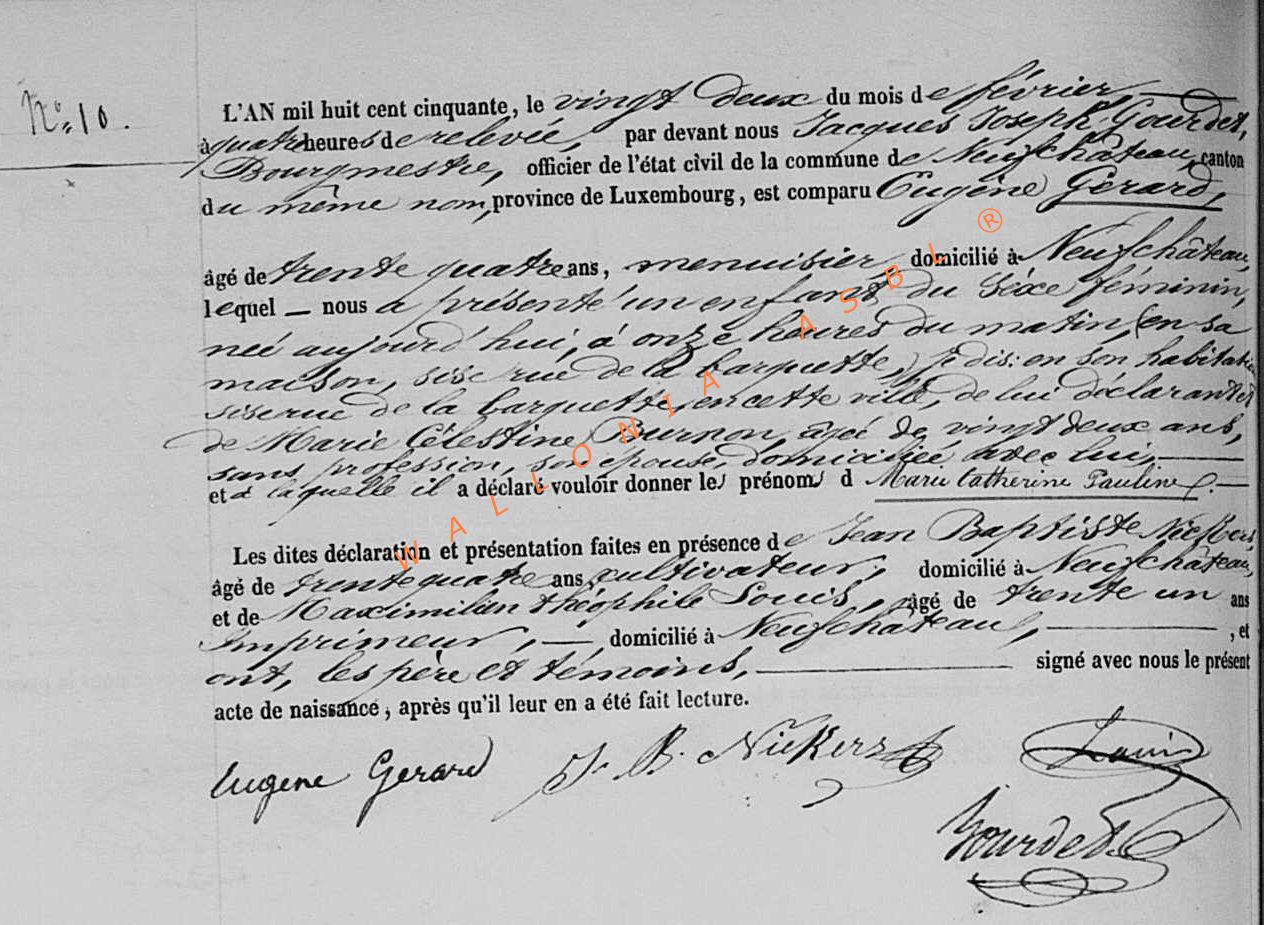 N° 10.
L'AN mil huit cent cinquante, le vingt deux du mois de février,
à quatre heures de relevée, par devant nous Jacques Joseph Gourdet,
Bourgmestre, officier de l'état civil de la commune de Neufchâteau, canton
du même nom, province de Luxembourg, est comparu Eugène Gérard,
âgé de trente quatre ans, menuisier, domicilié à Neufchâteau,
lequel — nous a présenté un enfant du séxe féminin,
neé aujourd'hui, à onze heures du matin, (en sa
maison, sise rue de la barquette,) je dis: en son habitation
sise rue de la barquette, en cette ville, de lui déclarant et
de Marie Célestine Burnon, âgée de vingt deux ans,
sans profession, son épouse, domiciliée avec lui,
et à laquelle il a déclaré vouloir donner les prénoms d Marie Catherine Pauline.
Les dites déclaration et présentation faites en présence de Jean Baptiste Niekers,
âgé de trente quatre ans, cultivateur, domicilié à Neufchâteau,
et de Maximilien théophile Louis, âgé de trente un ans
Imprimeur, domicilié à Neufchâteau, , et
ont, les père et témoins, signé avec nous le présent
acte de naissance, après qu'il leur en a été fait lecture.
Eugene Gerard J. B. Niekers Louis
Gourdet
WALLONIA ASBL ®